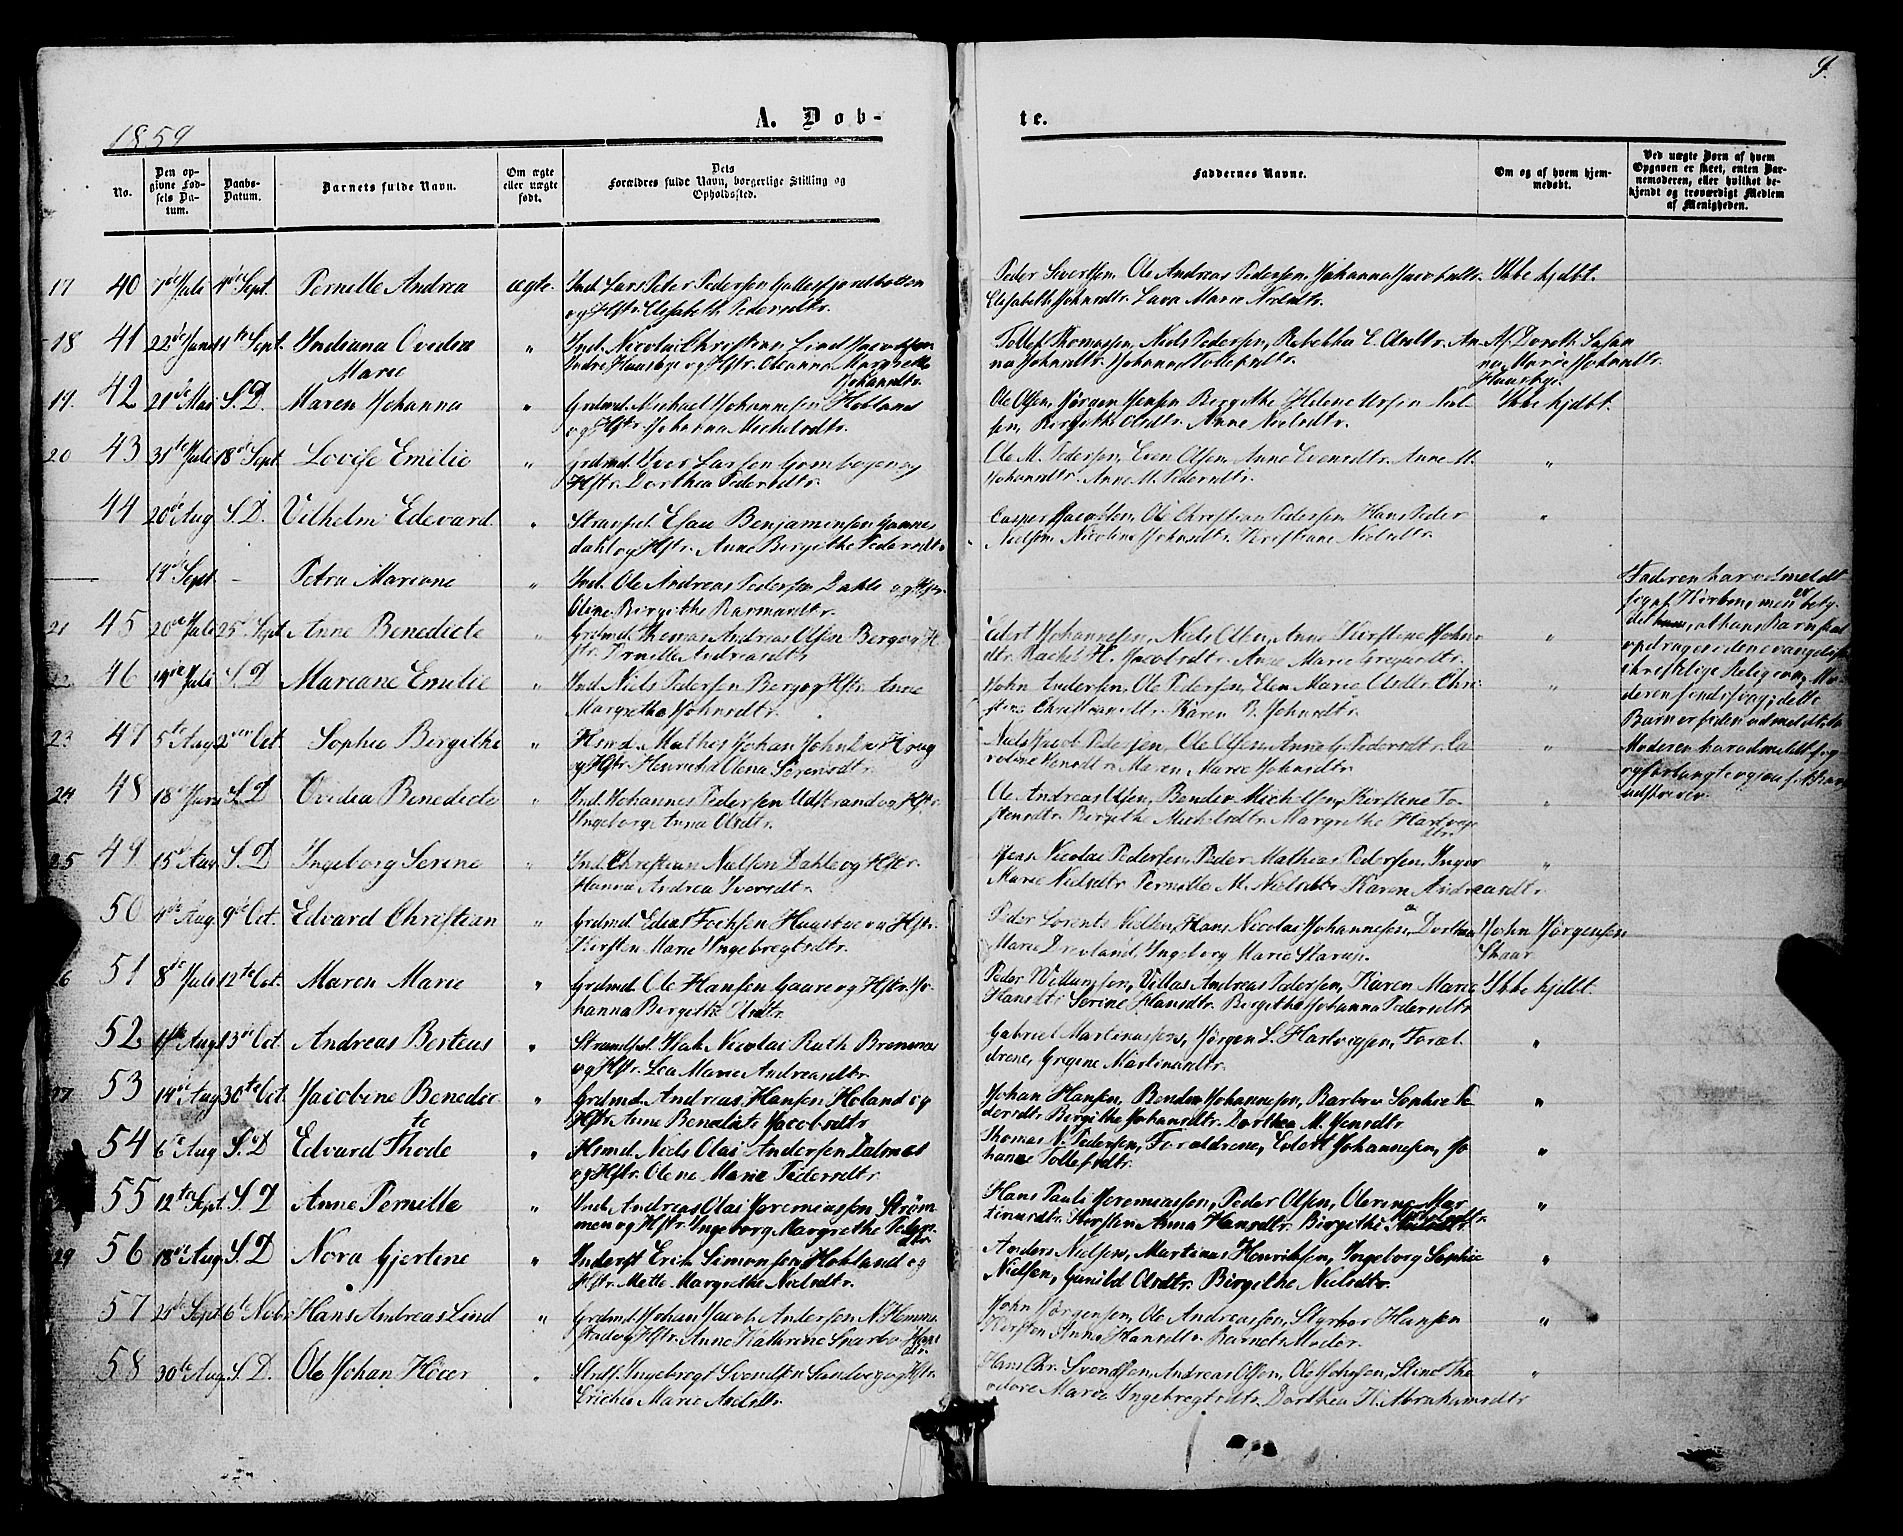 9.
1859
A. Døb-
te.
No.
Den op-
givne Fød-
sels Da-
tum.
Daabs-
Datum.
Barnets fulde Navn.
Om ægte
eller uægte
født.
Dets
Forældres fulde Navn, borgerlige Stilling og
Opholdssted.
Faddernes Navne.
Om og af hvem hjem-
medøbt.
Ved uægte Børn af hvem
Opgaven er skeet, enten Bar-
nemoderen, eller hvilket be-
kjendt og troværdigt Medlem
af Menigheden.
17 40 7de Juli 4de Sept. Pernille Andrea ægte. Ind. Lars Peter Pedersen
og Hstr. Elisabeth Pedersdtr.
Peder Sivertsen, Ole Andreas Pedersen, Johanna Jacobsdtr. Ikke hjdbt.
Elisabeth Johnsdtr. Lava Maria
18 41 22de Juni 11te Sept. Indiana Ovedia " Ind. Nicolai Christian Lind
Marie Indre Haasbye og Hstr. Oleanna Margrethe
Johansdtr.
Tollef Thomassen, Niels Pedersen, Rebekka E. Olsdtr. An Af Doroth. Susan
na Johansdtr. Johanna Tollefsdtr. na Maria
19. 42 21de Mai S. D. Maren Johanna " Grdmd. Michael Johannesen Hobland
og Hstr. Johanna Michelsdtr.
Ole Olsen, Jørgen Jensen Bergithe Helene Niel Ikke hjdbt.
sen, Bergithe Olsdtr. Anne Nielsdtr.
20 43 31te Juli 18de Sept Lovise Emilie " Grdmd. Iver Larsen
Hstr. Dorthea Pedersdtr.
Ole M. Pedersen, Even Olsen, Anne Evensdtr. Anne M. "
Johansdtr. Anne M. Pedersdtr.
44 20de Aug S. D. Vilhelm Edevard " Strandsd. Esau Benjaminsen
dahl og Hstr. Anne Bergithe Pedersdtr.
Casper Jacobsen, Ole Christian Pedersen Hans Peder "
Nielsen, Nicoline Johnsdtr. Kirstiane Nielsdtr.
14de Sept - Petra Mariane " Ind. Ole Andreas Pedersen Dahle og Hstr.
Oline Bergithe
Faderen har udmeldt
sig af Kirken, men
21 45 20de Juli 25de Sept Anne Benedicte " Grdmd. Thomas Andreas Olsen Berg og H
str. Pernille Andreasdtr.
Edert Johannesen, Niels Olsen, Anne Kirstine John "
sdtr. Rachel H. Jacobsdtr. Anne Marie
at hans Barn skal
opdrages i den evangelisk
christelige Religion, Mo
deren
46 19de Juli S. D Mariane Emilie " Ind. Niels Pedersen Berg og Hstr. Anne
Margrethe Johnsdtr.
John Andersen, Ole Pedersen, Elen Maria Olsdtr. Chri- "
stine Christiansdtr. Karen B. Johnsdtr.
Barn er siden udmeldt, da
23 47 5te Aug 2den Oct Sophie Bergithe " Hsmd. Mathis Johan
og Hstr. Henrikka Olena Sørensdtr.
Niels Jacob Pedersen, Ole Olsen, Anne G. Pedersdtr. Ca "
roline Jensdtr. Maren Marie Johnsdtr.
Moderen har udmeldt sig
og forlangte
udskreven.
24 48 18de Juni S. D Ovedia Benedicte " Ind. Johannes Pedersen Udstrand og Hstr.
Ingeborg Anna Olsdtr.
Ole Andreas Olsen, Bender Michelsen, Kirstine To- "
stensdtr. Bergithe Michelsdtr. Margrethe Hartvigs
dtr.
25 49 15de Aug S. D Ingeborg Serine " Ind. Christian Nielsen Dahle og Hstr.
Hanna Andrea Iversdtr.
Jens Nicolai Pedersen, Peder Mathias Pedersen, Inger "
Marie Nielsdtr. Pernille M. Nielsdtr. Karen Andreasdtr.
50 4de Aug 9de Oct. Edvard Christian " Grdmd. Edias og Hstr.
Kirsten Marie Ingebregtsdtr.
Peder Lorents Nielsen, Hans Nicolai Johannesen, Dorthea John Jørgensen
Marie Drevland, Ingeborg Marie Skaar
26 51 8de Juli 12te Oct. Maren Marie " Grdmd. Ole Hansen Gaare og Hstr. Jo
hanna Bergitte Olsdtr.
Peder Willumsen, Villas Andreas Pedersen, Karen Marie Ikke hjdbt.
Hansdtr Serine Hansdtr. Bergithe Johanna Pedersdtr
52 Aug 13de Oct. Andreas Berteus " Strandsd. Isak Nicolai Rath
og Hstr. Lea Marie Andreasdtr.
Gabriel Martinussen, Jørgen L. Hartvigsen, Foræl "
drene, Gregine Martinusdtr.
27 53 14de Aug 30te Oct. Jacobine Benedic " Grdmd. Andreas Hansen Holand og
te Hstr. Anne Benedicte Jacobsdtr
Johan Hansen, Bender Johannesen, Barbra Sophie Pe "
dersdtr. Bergithe Johansdtr. Dorthea M. Jensdtr
54 6te Aug S. D Edvard Thode " Hsmd. Niels Olai Andersen Dalmos
og Hstr. Olene Marie Pedersdtr.
Thomas N. Pedersen, Forældrene, Edert Johannesen, Jo "
hanne Tollefsdtr.
55 12te Sept. S. D Anne Pernille " Ind. Andreas Olai Jeremiassen Strøm
men og Hstr. Ingeborg Margrethe Peders
dtr.
Hans Pauli Jeremiassen, Peder Olsen, Olerine Mar "
tinusdtr. Kirsten Anna Hansdtr. Birgithe
29 56 18de Aug. S. D Nora Gjertine " Inderst Erik Simonsen Hobland og
Hstr. Mette Margrethe Nielsdtr.
Anders Nielsen, Martinus Henriksen, Ingeborg Sophie "
Nielsen, Gunild Olsdtr. Birgithe Nielsdtr.
57 25de Sept 6te Nobr. Hans Andreas Lind " Grdmd. Johan Jacob Andersen N. Hemme
stad og Hstr. Anne Kathrine Hans
dtr.
John Jørgensen, Ole Andreassen, Styrkor Hansen "
Kirsten Anna Hansdtr. Barnets Moder.
58 30te Aug. S. D. Ole Johan Høier " Strdsd. Ingebregt Svendsen og Hstr.
Ericka Marie
Hans Chr. Svendsen, Andreas Olsen, Ole Johnsen, Stine The "
odore Maria Ingebregtsdtr. Dorthea K. Abrahamsdtr